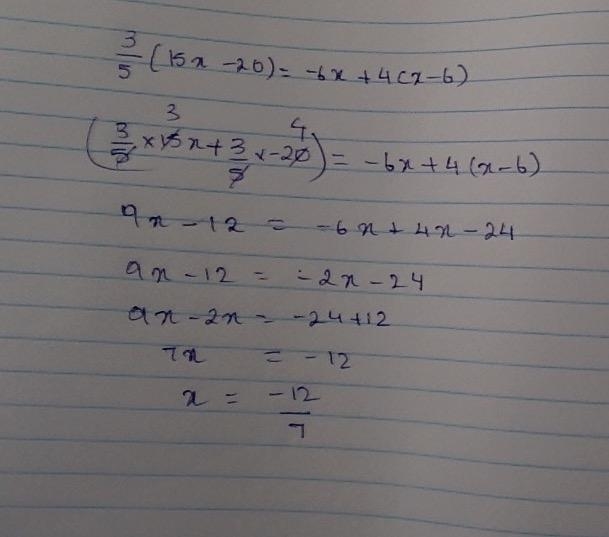 3/5 (15x - 20) = -6x + 4(x - 6)
(3/5 × 15x + 3/5 × -20) = -6x + 4(x - 6)
9x - 12 = -6x + 4x - 24
9x - 12 = -2x - 24
9x - 2x = -24 + 12
7x = -12
x = -12/7